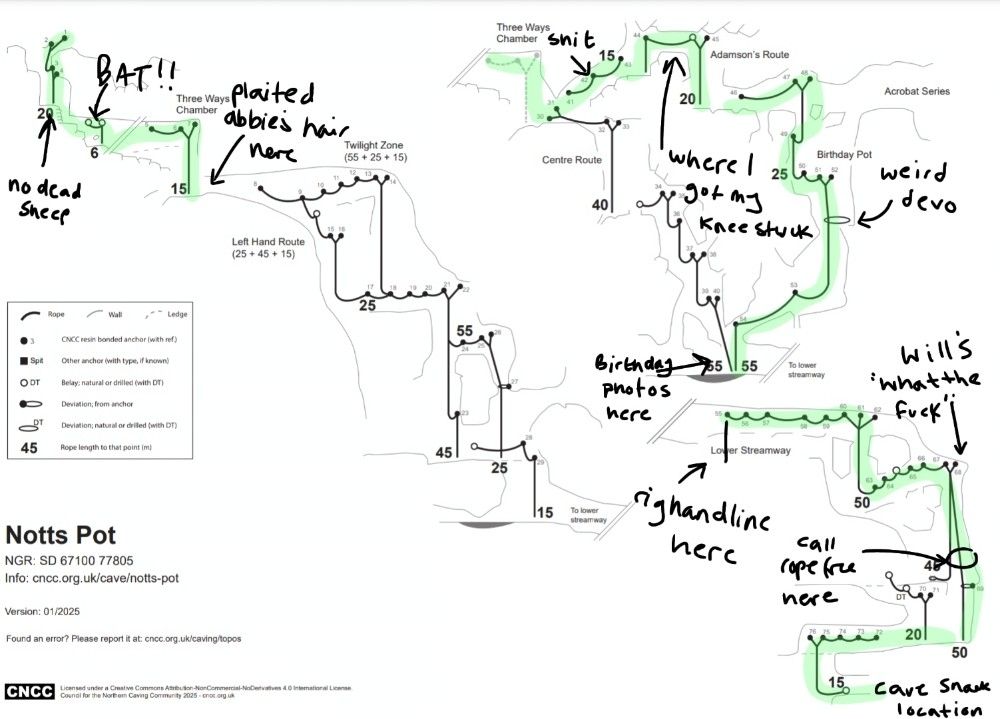 Three Ways
Chamber
snit
15
44
45
Adamson's Route
20
BAT!!
20
6
no dead
sheep
Three Ways
Chamber
15
plaited
abbie's hair
here
Twilight Zone
(55 + 25 + 15)
Left Hand Route
(25 + 45 + 15)
25
55
45
25
15
To lower
streamway
Centre Route
40
where I
got my
knee stuck
Acrobat Series
Birthday Pot
25
weird
devo
Birthday
photos
here
55
55
To lower
streamway
Will's
"what the
fuck"
Lower Streamway
50
righandline
here
call
rope free
here
45
DT
20
50
15
cave snack
location
Rope
Wall
Ledge
3
CNCC resin bonded anchor (with ref.)
Spit
Other anchor (with type, if known)
DT
Belay; natural or drilled (with DT)
Deviation; from anchor
DT
Deviation; natural or drilled (with DT)
45
Rope length to that point (m)
Notts Pot
NGR: SD 67100 77805
Info: cncc.org.uk/cave/notts-pot
Version: 01/2025
Found an error? Please report it at: cncc.org.uk/caving/topos
CNCC
Licensed under a Creative Commons Attribution-NonCommercial-NoDerivatives 4.0 International License.
Council for the Northern Caving Community 2025 - cncc.org.uk